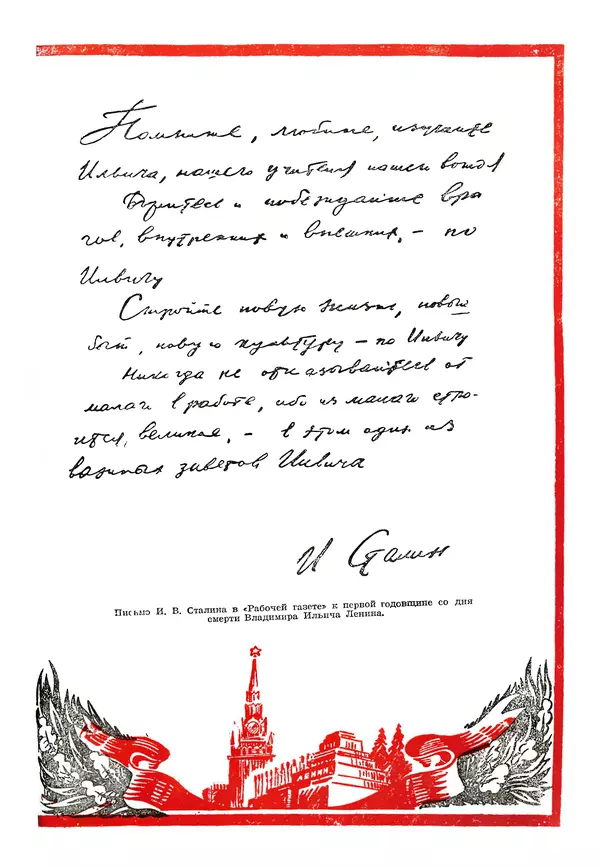 Помните, любите, изучайте
Ильича, нашего учителя нашего вождя
Боритесь и побеждайте вра
гов, внутренних и внешних, – по
Ильичу
Стройте новую жизнь, новый
быт, новую культуру – по Ильичу
Никогда не отказывайтесь от
малого в работе, ибо из малого стро-
ится, великое, – в этом один из
важных заветов Ильича
И Сталин
Письмо И. В. Сталина в «Рабочей газете» к первой годовщине со дня
смерти Владимира Ильича Ленина.
ЛЕНИН